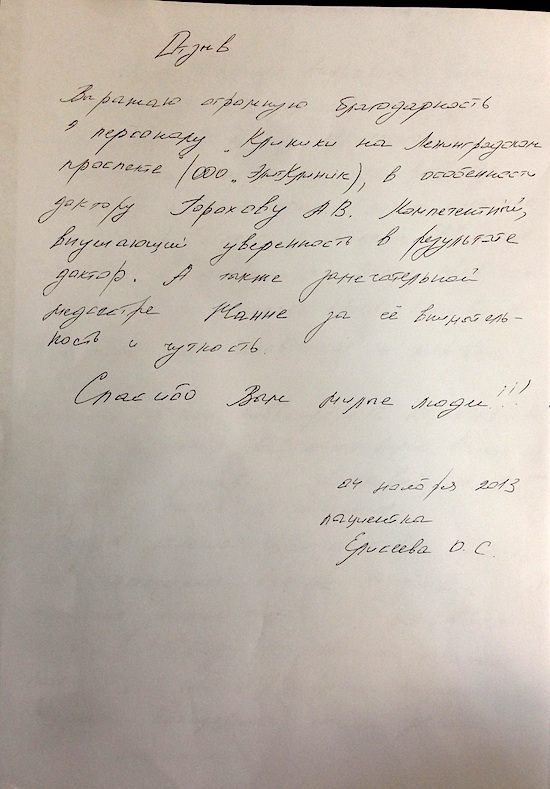 Отзыв
Выражаю огромную благодарность
персоналу „Клиники на Ленинградском
проспекте (ООО „ЭлитКлиник), в особенности
доктору Горохову А.В. Компетентный,
внушающий уверенность в результате
доктор. А также замечательной
медсестре Жанне за её вниматель-
ность и чуткость.
Спасибо Вам милые люди!!!
04 ноября 2013
пациентка
Елисеева О.С.